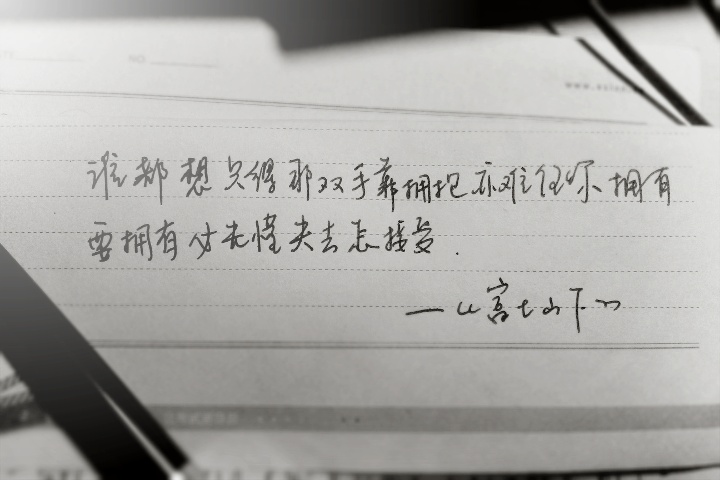 NO
谁都想只得那双手靠拥抱亦难任你拥有
要拥有必先懂失去怎接受.
—《富士山下》